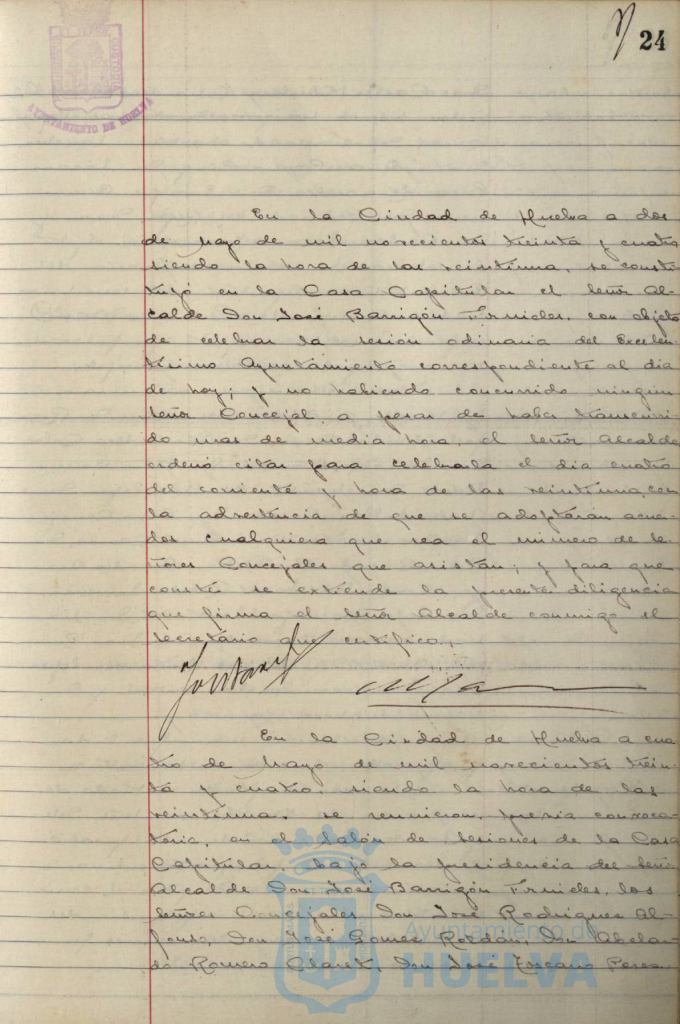 24
AYUNTAMIENTO DE HUELVA
En la Ciudad de Huelva a dos
de Mayo de mil novecientos treinta y cuatro
siendo la hora de las veintiuna, se consti-
tuyó en la Casa Capitular el Señor Al-
calde Don José Barrigón Fornieles, con objeto
de celebrar la sesión ordinaria del Excelen-
tísimo Ayuntamiento correspondiente al dia
de hoy; y no habiendo concurrido ningún
Señor Concejal, a pesar de haber transcurri-
do mas de media hora, el Señor Alcalde
ordenó citar para celebrarla el dia cuatro
del corriente y hora de las veintiuna, con
la advertencia de que se adoptarán acuer-
dos cualquiera que sea el número de Se-
ñores Concejales que asistan; y para que
conste se extiende la presente diligencia
que firma el Señor Alcalde conmigo el
Secretario que certifico.
En la Ciudad de Huelva a cua-
tro de Mayo de mil novecientos trein-
ta y cuatro, siendo la hora de las
veintiuna, se reunieron, previa convoca-
toria, en el Salón de Sesiones de la Casa
Capitular, bajo la presidencia del Señor
Alcalde Don José Barrigón Fornieles, los
Señores Concejales Don José Rodriguez Al-
fonso, Don José Gomez Roldán, Don Abelar-
do Romero Claret, Don José Toscano Perez
Ayuntamiento de
HUELVA